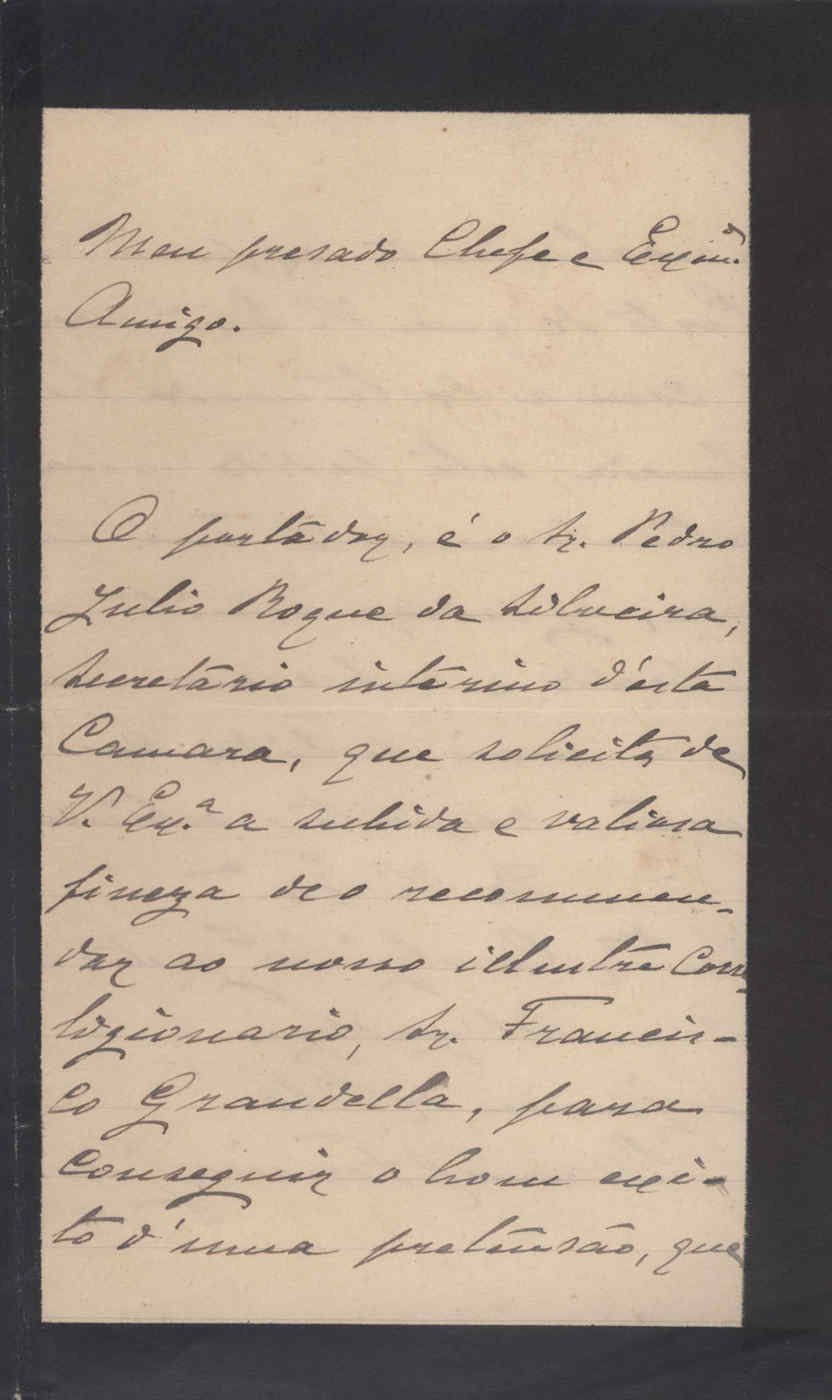 Meu presado Chefe e Exmº.
Amigo.
O portador, é o Sr. Pedro
Julio Roque da Silveira,
secretário interino d'esta
Camara, que solicita de
V. Ex.ª a subida e valiosa
fineza de o recommen-
dar ao nosso illustre Corre-
ligionario, Sr. Francis-
co Grandella, para
conseguir o bom exi-
to d'uma pretensão, que